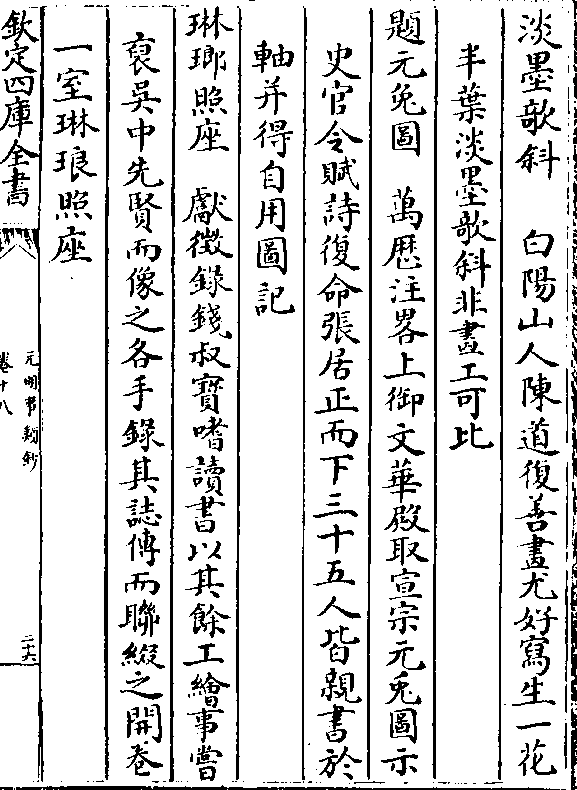 淡墨欹斜　白陽山人陳道復善畫尤好寫生一花
半葉淡墨欹斜非畫工可比
題元兔圖　萬厯注畧上御文華殿取宣宗元兎圖示
史官令賦詩復命張居正而下三十五人皆親書於
軸并得自用圖記
琳瑯照座　獻徵錄錢叔寶嗜讀書以其餘工繪事嘗
裒吳中先賢而像之各手錄其誌傳而聯綴之開卷
一室琳琅照座
欽定四庫全書
元明事類鈔
卷十八
二十六